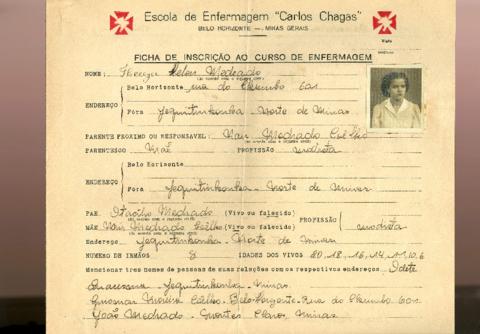 Escola de Enfermagem "Carlos Chagas"
BELO HORIZONTE — MINAS GERAIS
FICHA DE INSCRIÇÃO AO CURSO DE ENFERMAGEM
NOME: Nelsi Medrado
Belo Horizonte, rua do Chumbo 601
ENDEREÇO
Fóra Jequitinhonha - Norte de Minas
PARENTE PROXIMO OU RESPONSAVEL: Medrado Coêlho
PARENTESCO Mãe PROFISSÃO modista
Belo Horizonte
ENDEREÇO
Fóra Jequitinhonha - Norte de Minas
PAE: Medrado (Vivo ou falecido)
PROFISSÃO modista
MÃE Medrado Coêlho (Vivo ou falecido)
Endereço Jequitinhonha Norte de Minas
NUMERO DE IRMÃOS 8 IDADES DOS VIVOS 20, 18, 16, 14, 11, 10, 6
Mencionar tres nomes de pessoas de suas relações com os respectivos endereços Idete
Jequitinhonha - Minas
Moreira Coêlho. Belo Horizonte - Rua do Chumbo 601
João Medrado - Montes Claros Minas